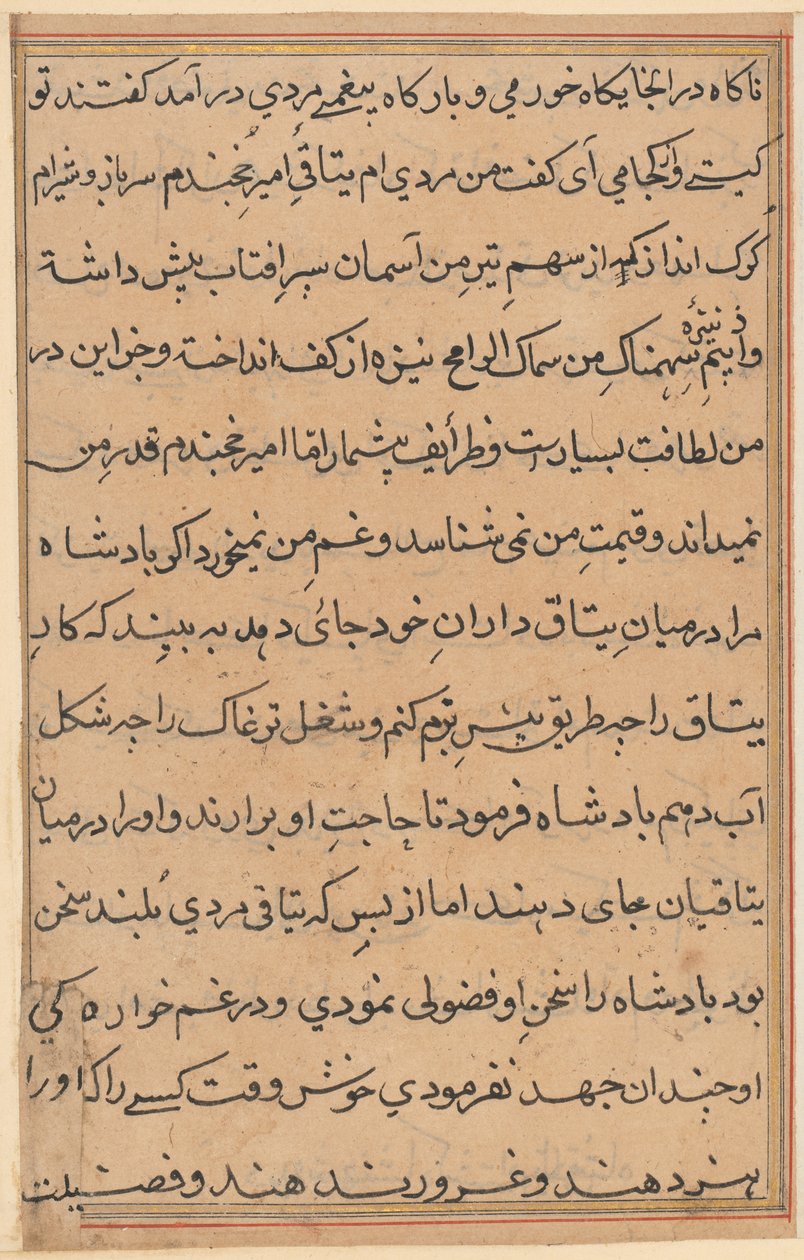 ناکاه در انجایکاه خورمي و بارکاه بیغمے مردي در آمد کفتند تو
کیستے و از کجا مي آی کفت من مردي ام یتاقيِ امیرِ خجندم سرباز و شیرام
کوک انداز که از سهمِ تیرِ من آسمان سپرِ افتاب پیش داشته
و از بیمِ نیزهٔ سهمناکِ من سماک الرامح نیزه از کف انداخته و جز این در
من لطافت بسیارست و ظرأیف بیشمار امّا امیر خجندم قدرِ من
نمیداند و قیمتِ من نمی شناسد و غمِ من نمیخورد اکر بادشاه
مرا در میانِ یتاق دارانِ خود جائی دهد به بیند که کارِ
یتاق را چه طریق پیشِ برم کنم و شغل ترغاک را چه شکل
آب دهم بادشاه فرمود تا حاجتِ او برارند و او را درمیان
یتاقیان جای دهند اما از بسِ که یتاقی مردي بُلند سخن
بود بادشاه را سخنِ او فضولی نمودي و در غم خواره کي
او چندان جهد نفرمودي خوش وقت کسے را که او را
هنر دهند و غرور ندهند و فضیلت